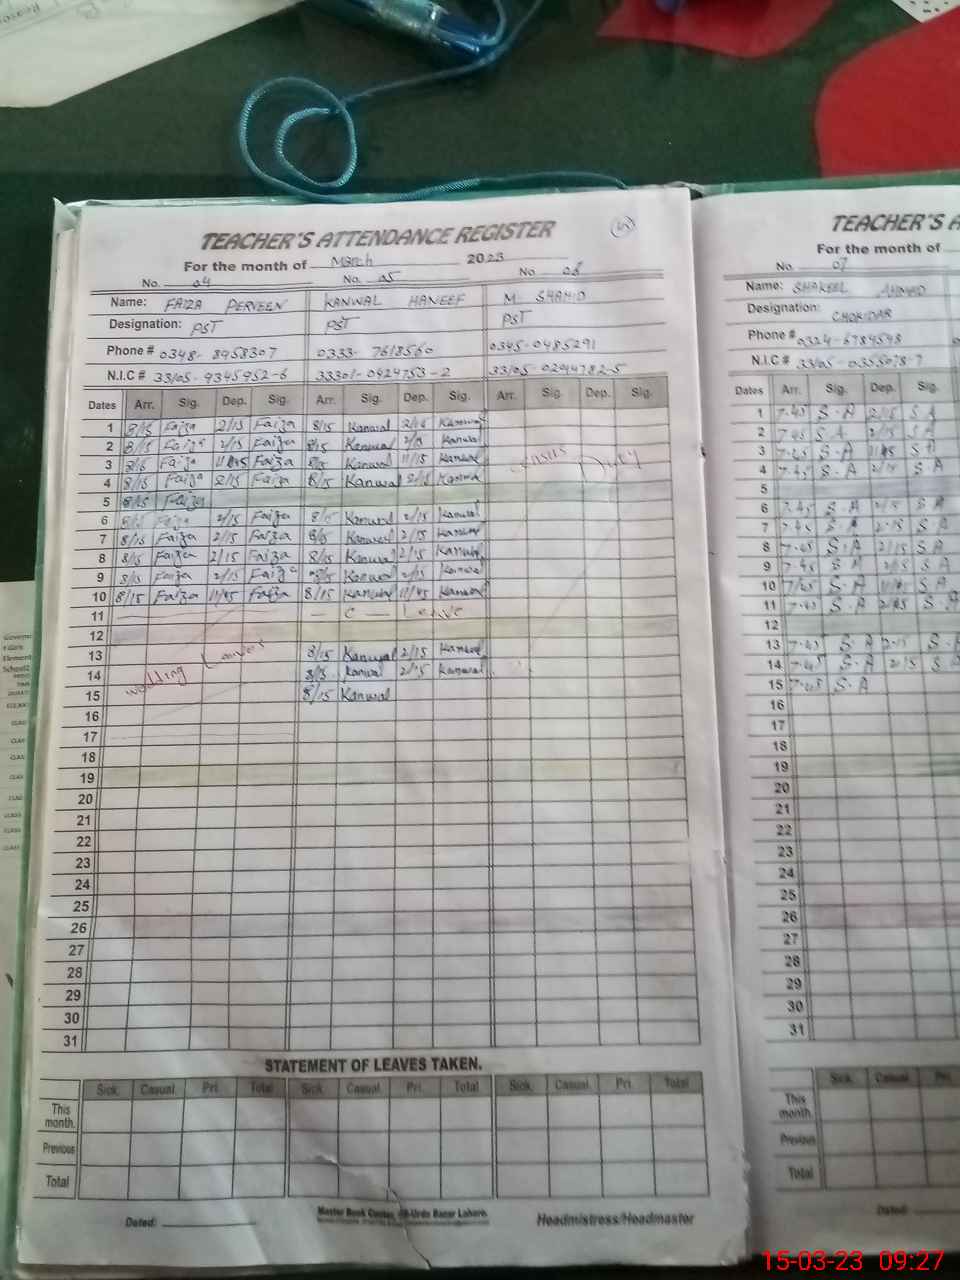 TEACHER'S ATTENDANCE REGISTER
For the month of March 2023
No. 04 No. 05 No 06
Name: FAIZA PERVEEN KANWAL HANEEF M. SHAHID
Designation: PST PST PST
Phone # 0348-8958307 0333-7618560 0345-0485291
N.I.C # 33105-9345952-6 33301-0424753-2 33105-0294782-5
Dates Arr. Sig. Dep. Sig. Arr. Sig. Dep. Sig. Arr. Sig. Dep. Sig.
1 8/15 Faiza 2/15 Faiza 8/15 Kanwal 2/15 Kanwal
2 8/15 Faiza 2/15 Faiza 8/15 Kanwal 2/15 Kanwal
3 8/15 Faiza 11/45 Faiza 8/15 Kanwal 11/15 Kanwal Census Duty
4 8/15 Faiza 2/15 Faiza 8/15 Kanwal 2/15 Kanwal
5 8/15 Faiza
6 8/15 Faiza 2/15 Faiza 8/15 Kanwal 2/15 Kanwal
7 8/15 Faiza 2/15 Faiza 8/15 Kanwal 2/15 Kanwal
8 8/15 Faiza 2/15 Faiza 8/15 Kanwal 2/15 Kanwal
9 8/15 Faiza 2/15 Faiza 8/15 Kanwal 2/15 Kanwal
10 8/15 Faiza 11/45 Faiza 8/15 Kanwal 11/45 Kanwal
11 — C — Leave
12
13 8/15 Kanwal 2/15 Kanwal
14 wedding Leaves 8/15 Kanwal 2/15 Kanwal
15 8/15 Kanwal
16
17
18
19
20
21
22
23
24
25
26
27
28
29
30
31
STATEMENT OF LEAVES TAKEN.
Sick. Casual. Pri. Total Sick. Casual. Pri. Total Sick. Casual. Pri. Total
This month.
Previous
Total
Dated:
Master Book Center, Urdu Bazar Lahore.
Headmistress/Headmaster
TEACHER'S A
For the month of
No. 07
Name: SHAKEEL AHMAD
Designation: CHOKIDAR
Phone # 0324-6784598
N.I.C # 33105-0355078-7
Dates Arr. Sig. Dep. Sig.
1 7.45 S.A 2/15 S A
2 7.45 S A 2/15 S A
3 7.45 S.A 11/45 S A
4 7.45 S.A 2/15 S A
5
6 7.45 S.A 2/15 S A
7 7.45 S.A 2.15 S A
8 7.45 S.A 2/15 S A
9 7.45 S.A 2/15 S A
10 7/45 S.A 11/45 S A
11 7.45 S.A S.A
12
13 7.45 S.A 2.15 S.
14 7.45 S.A 2/15 S A
15 7.45 S.A
16
17
18
19
20
21
22
23
24
25
26
27
28
29
30
31
Sick. Casual. Pri.
This month.
Previous
Total
Dated:
15-03-23 09:27